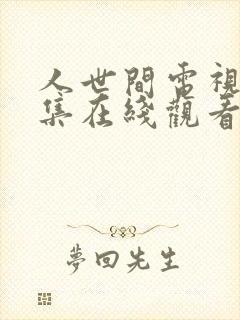 人世間電視
集在綫觀看
夢回先生